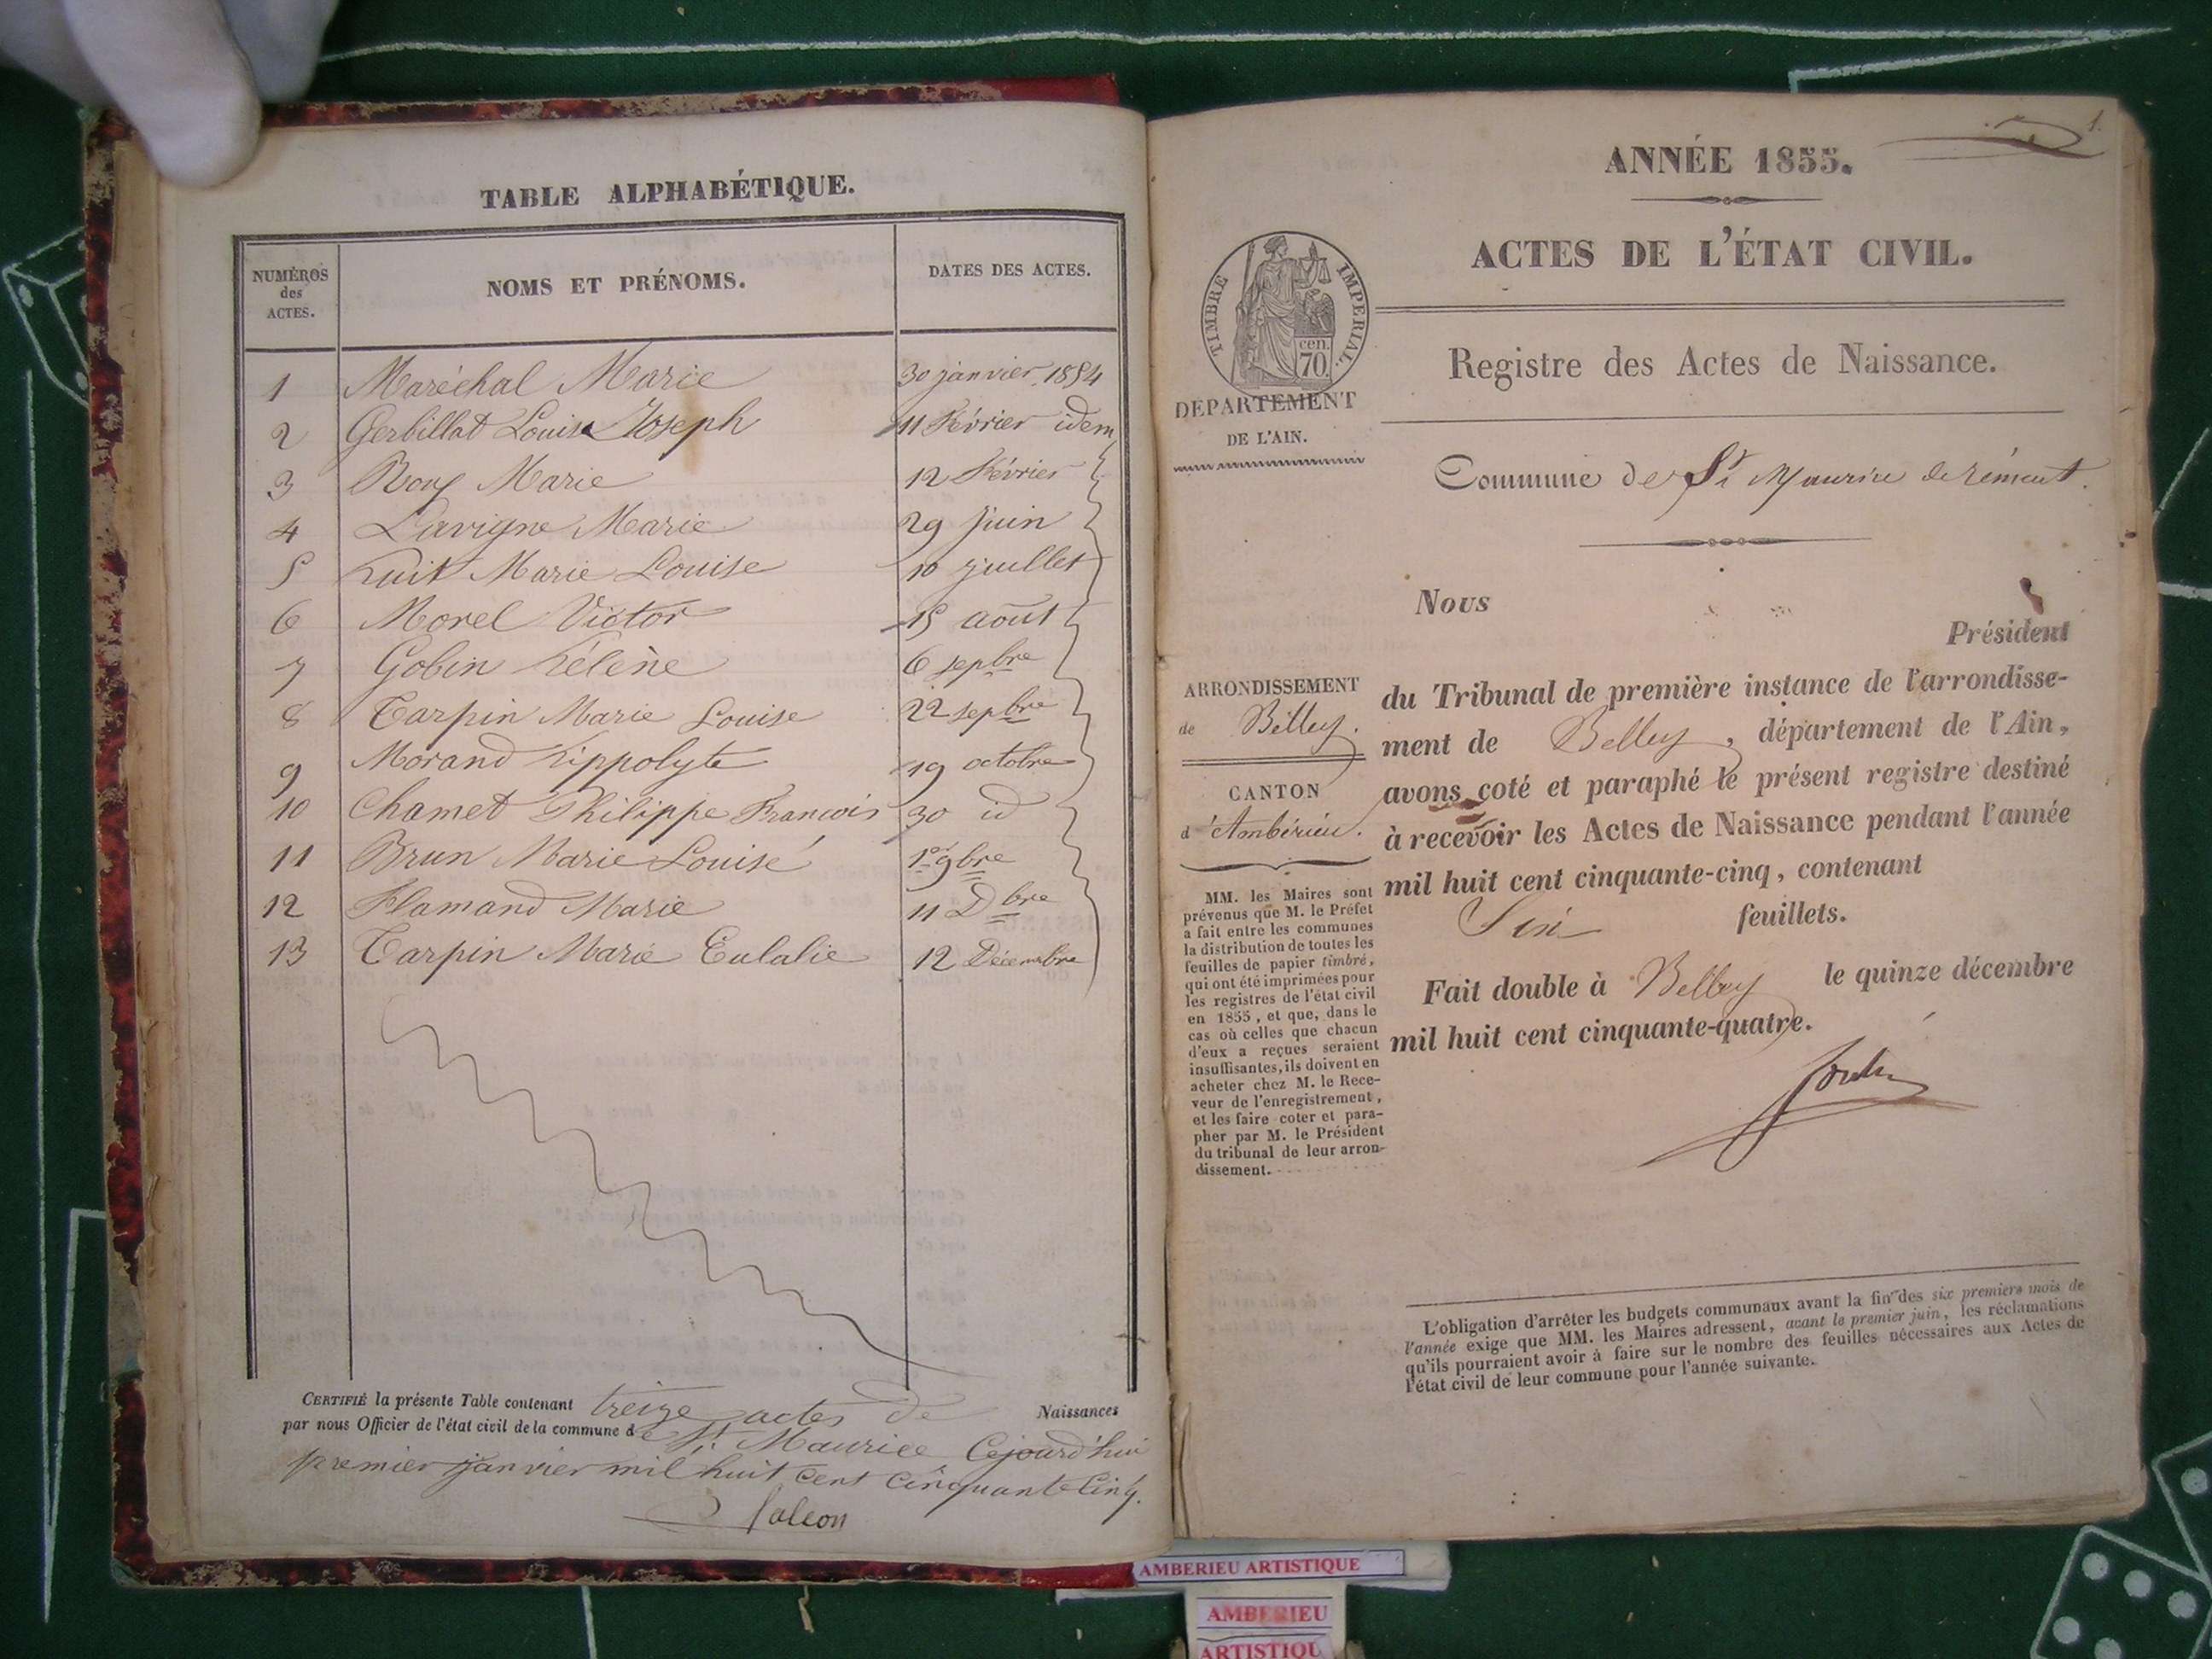 TABLE ALPHABÉTIQUE.
NUMÉROS
des
ACTES.
NOMS ET PRÉNOMS.
DATES DES ACTES.
1 Maréchal Marie 30 janvier 1854
2 Gerbillat Louis Joseph 11 Février idem
3 Roux Marie 12 Février
4 Lavigne Marie 29 Juin
5 Huit Marie Louise 10 juillet
6 Morel Victor 15 août
7 Gobin hélène 6 sepbre
8 Tarpin Marie Louise 22 sepbre
9 Morand hippolyte 19 octobre
10 Chamet Philippe Francois 30 id
11 Brun Marie Louise 1er 9bre
12 Flamand Marie 11 Dbre
13 Tarpin Marie Eulalie 12 Décembre
CERTIFIÉ la présente Table contenant treize actes de Naissances
par nous Officier de l'état civil de la commune de St Maurice Cejourd'hui
premier janvier mil huit cent cinquante cinq.
Falcon
1.
ANNÉE 1855.
ACTES DE L'ÉTAT CIVIL.
TIMBRE IMPERIAL.
cen.
70.
Registre des Actes de Naissance.
DÉPARTEMENT
DE L'AIN.
Commune de St Maurice de rémens.
Nous
Président
du Tribunal de première instance de l'arrondisse-
ment de Belley, département de l'Ain,
avons coté et paraphé le présent registre destiné
à recevoir les Actes de Naissance pendant l'année
mil huit cent cinquante-cinq, contenant
Six feuillets.
Fait double à Belley le quinze décembre
mil huit cent cinquante-quatre.
ARRONDISSEMENT
de Belley.
CANTON
d'Ambérieu.
MM. les Maires sont
prévenus que M. le Préfet
a fait entre les communes
la distribution de toutes les
feuilles de papier timbré,
qui ont été imprimées pour
les registres de l'état civil
en 1855, et que, dans le
cas où celles que chacun
d'eux a reçues seraient
insuffisantes, ils doivent en
acheter chez M. le Rece-
veur de l'enregistrement,
et les faire coter et para-
pher par M. le Président
du tribunal de leur arron-
dissement.
L'obligation d'arrêter les budgets communaux avant la fin des six premiers mois de
l'année exige que MM. les Maires adressent, avant le premier juin, les réclamations
qu'ils pourraient avoir à faire sur le nombre des feuilles nécessaires aux Actes de
l'état civil de leur commune pour l'année suivante.
AMBERIEU ARTISTIQUE
AMBERIEU
ARTISTIQU